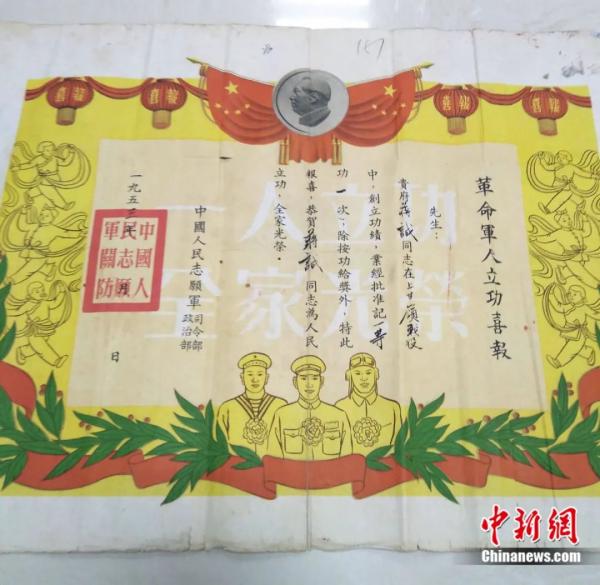 187
喜報
喜報
革命軍人立功喜報
先生：
貴府蔣誠同志在上甘嶺戰役
中，創立功績，業經批准記一等
功一次，除按功給獎外，特此
報喜，恭賀蔣誠同志為人民
立功，全家光榮。
中國人民志願軍司令部
政治部
一九五三年 月 日
中國人
民志願
軍關防
一人立功
全家光榮
中新網
Chinanews.com